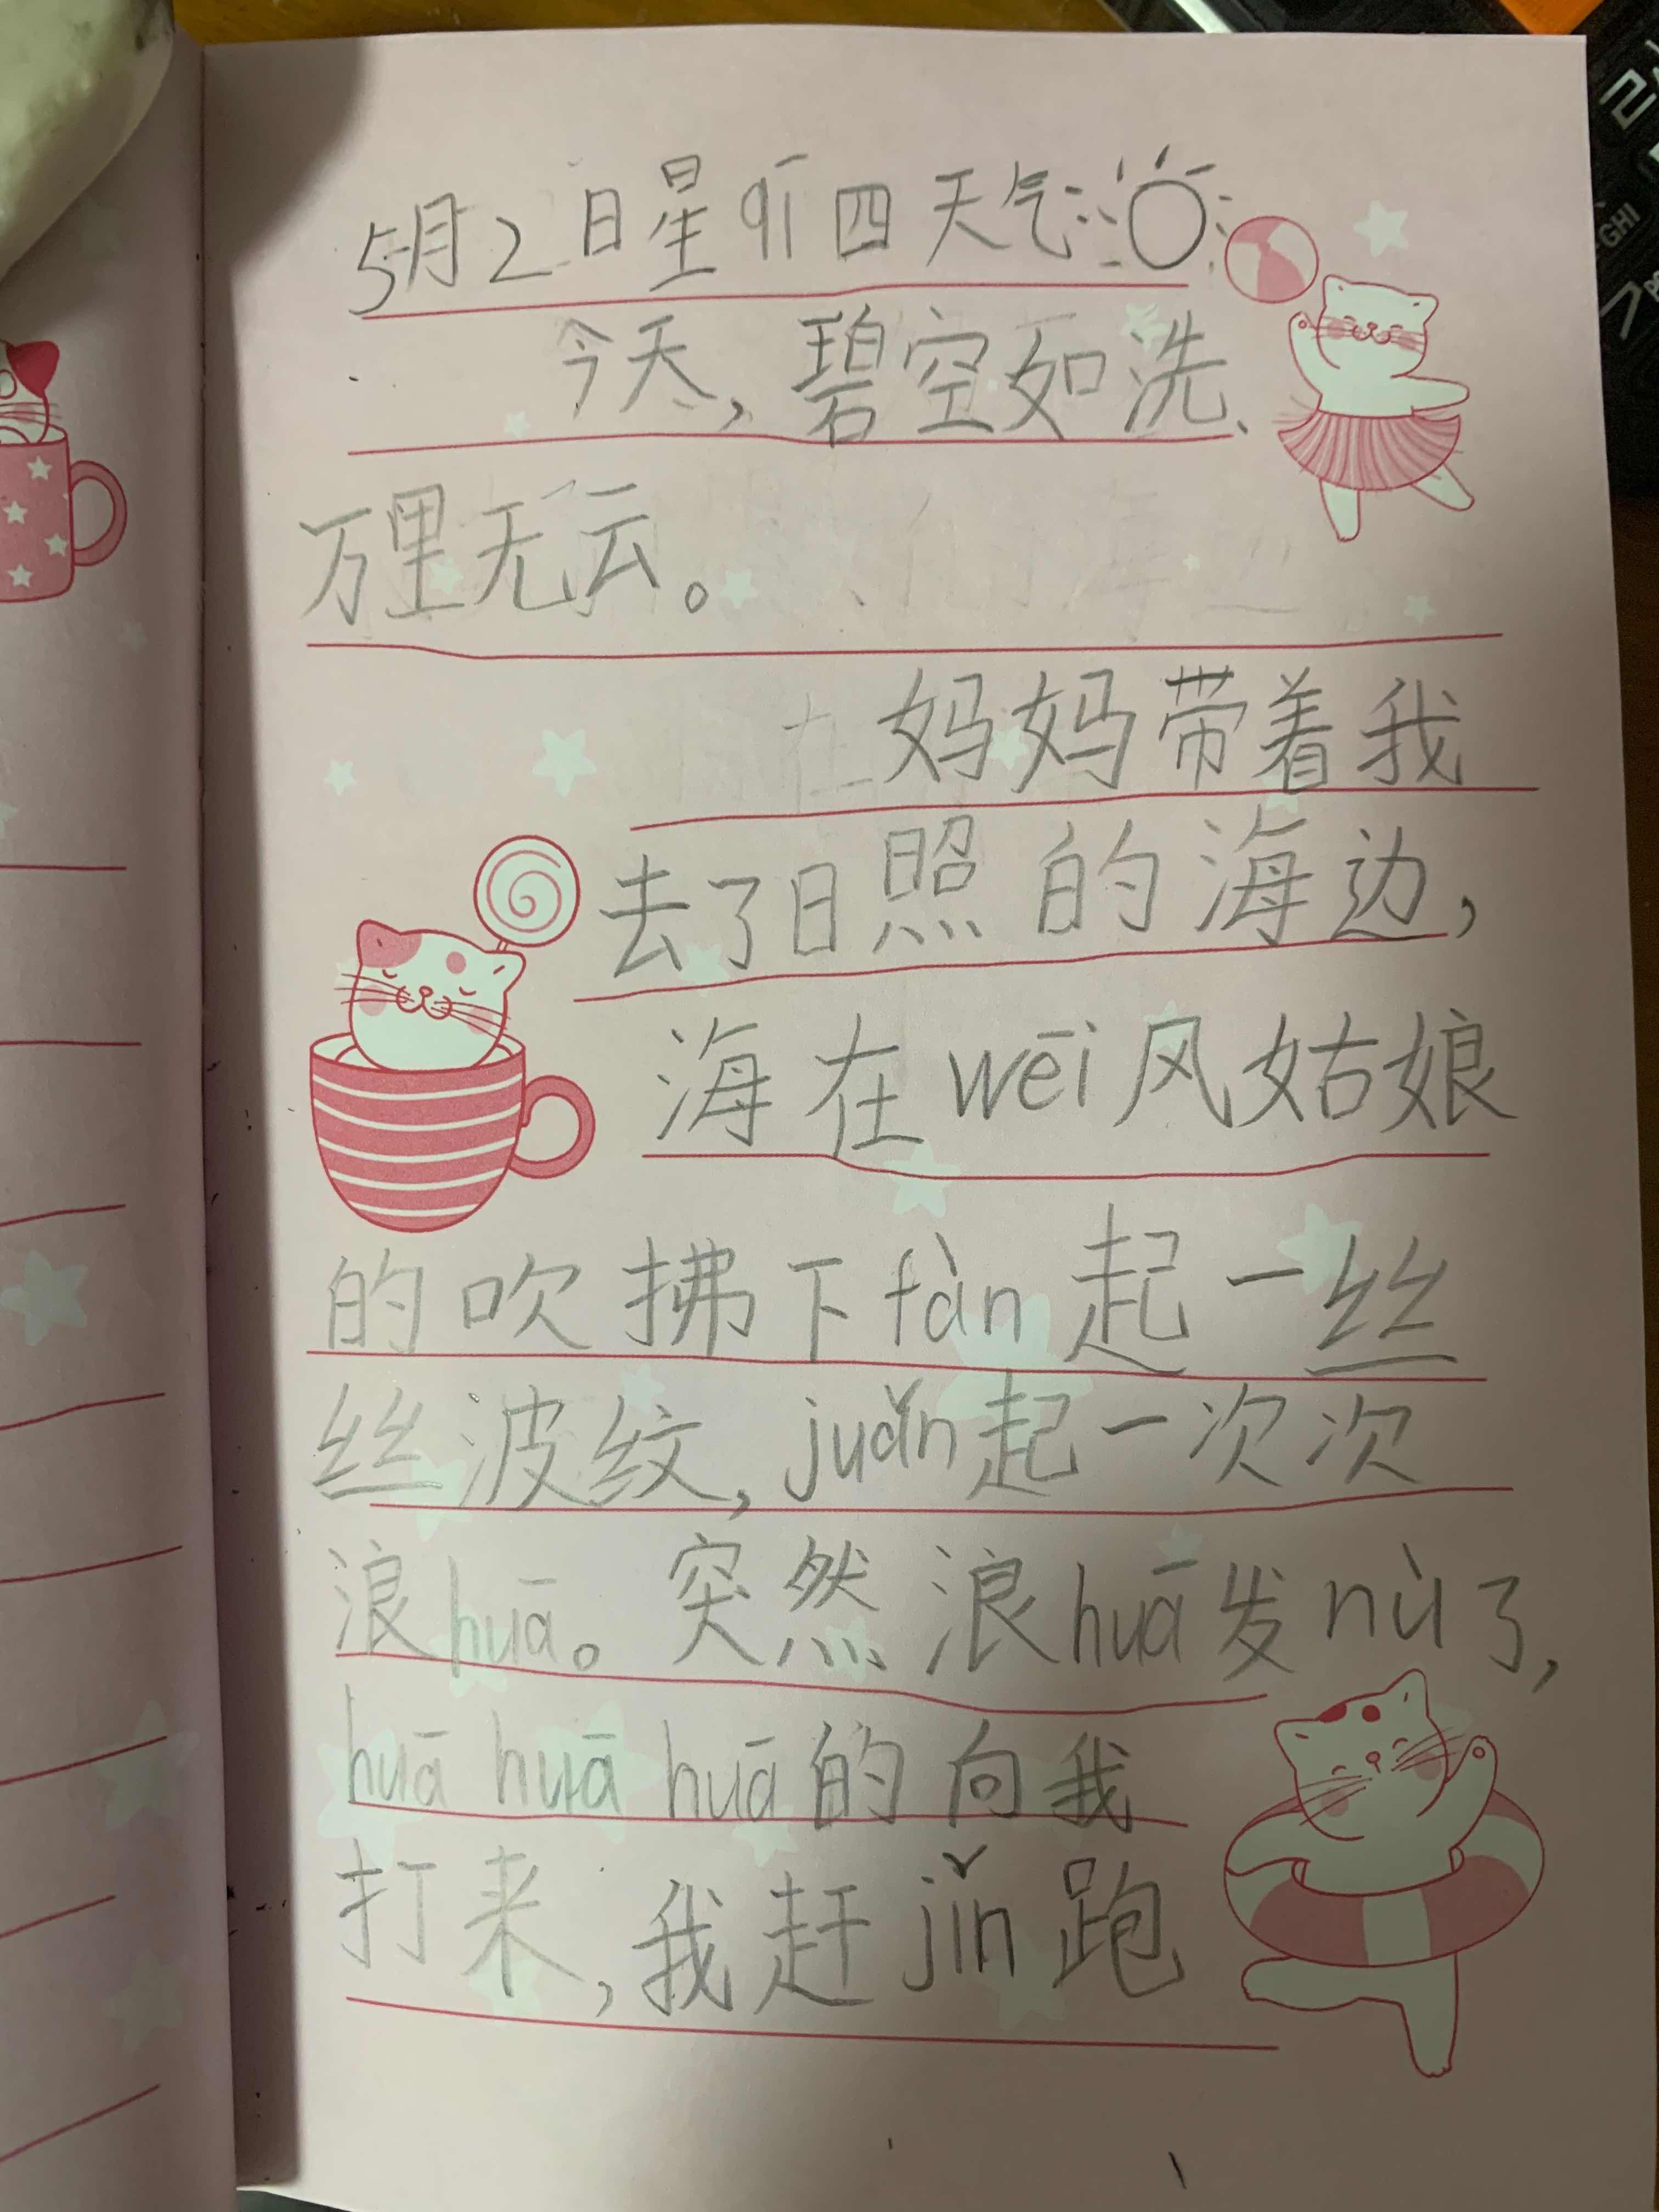 5月2日星qī四天气:
今天，碧空如洗、
万里无云。
妈妈带着我
去了日照的海边，
海在wēi风姑娘
的吹拂下fàn起一丝
丝波纹，juǎn起一次次
浪huā。突然浪huā发nù了，
huā huā huā的向我
打来，我赶jǐn跑